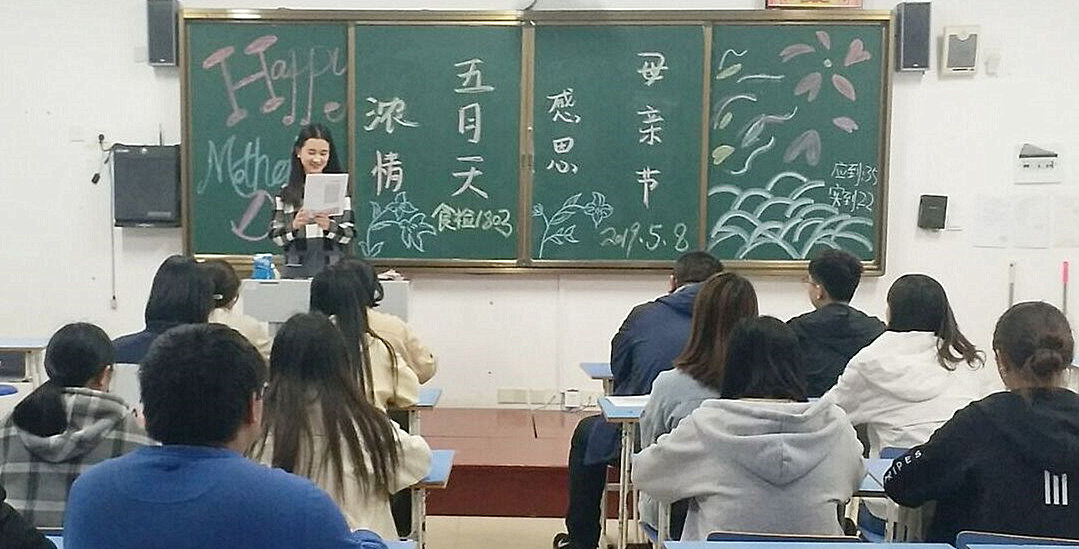 Happy
Mother
五月天
浓情
食检1803
母亲节
感思
2019.5.8
应到:35
实到22
IPES